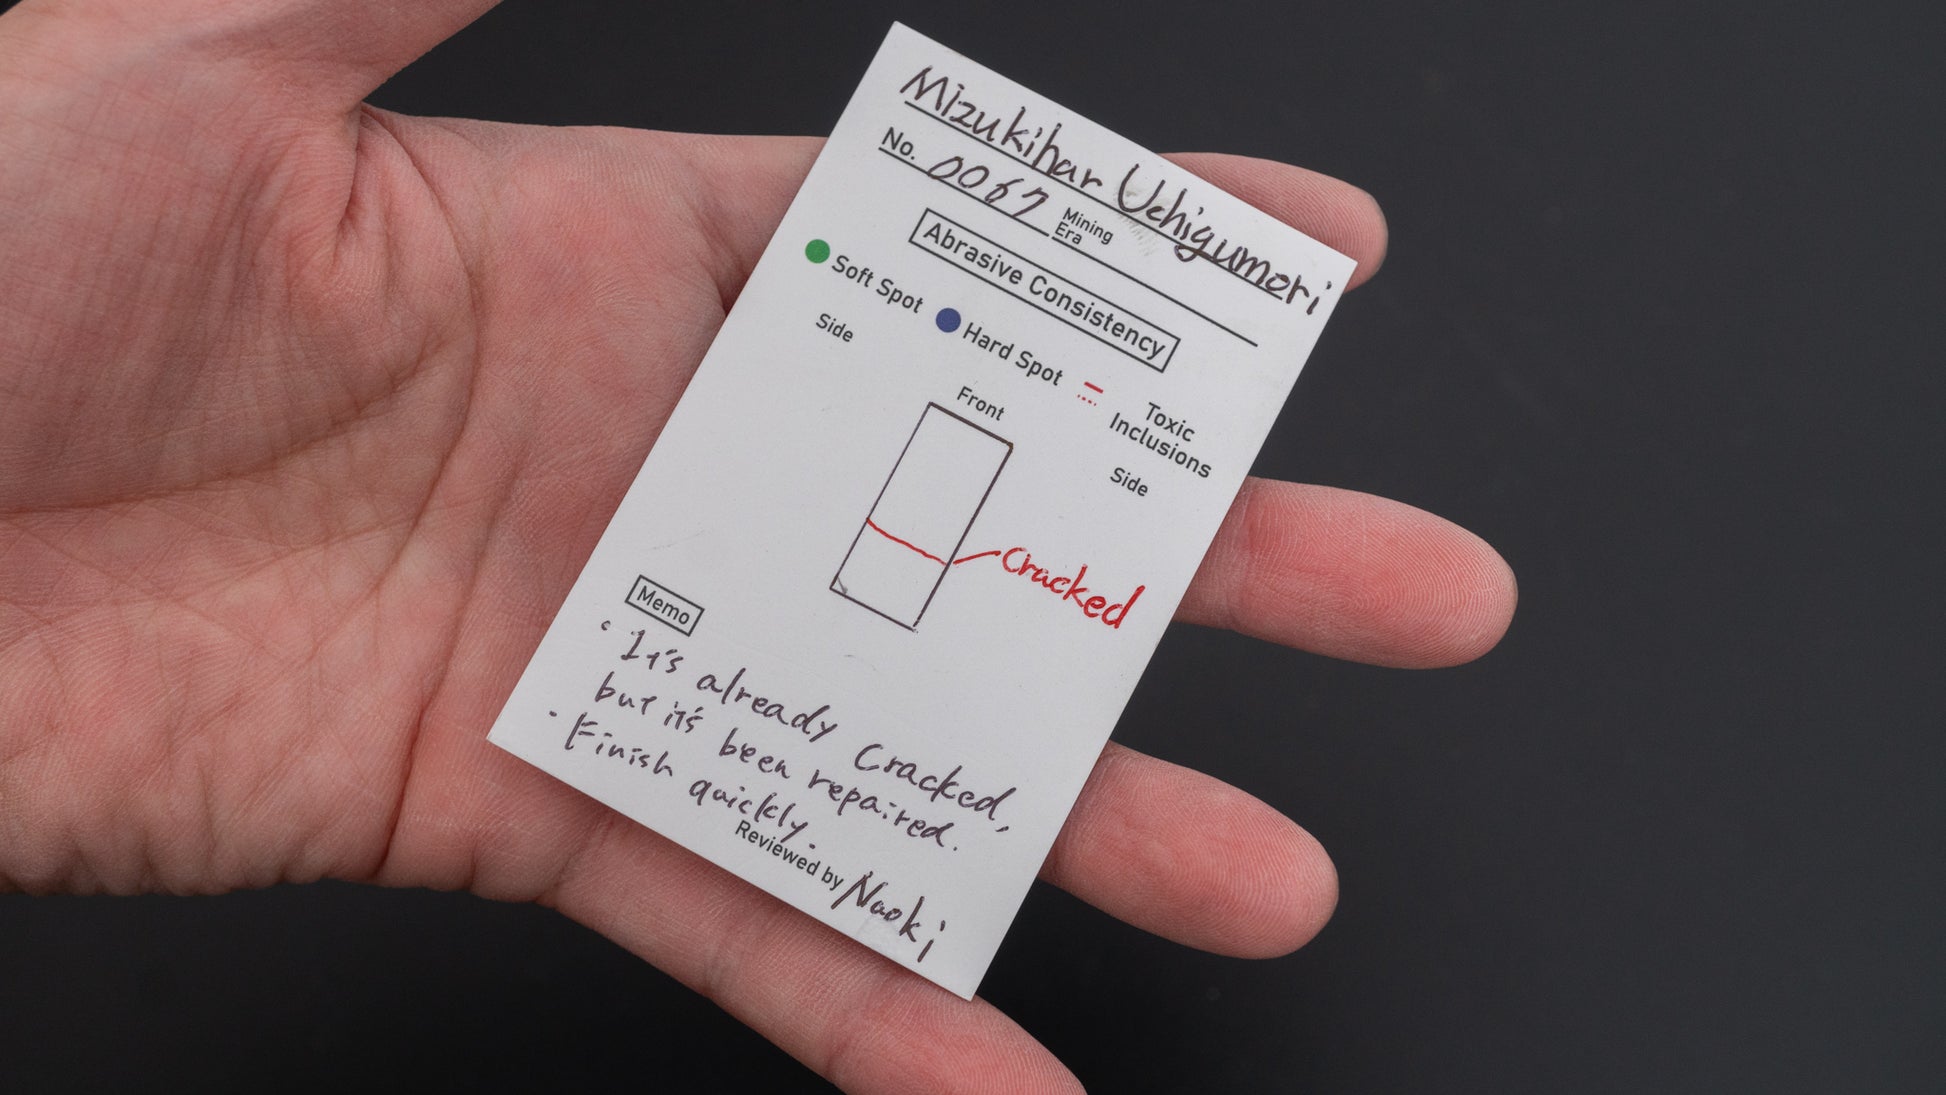 Mizukihar Uchigumori
No. 0067 Mining Era
Abrasive Consistency
Soft Spot Hard Spot Toxic Inclusions
Side
Front
Side
Cracked
Memo
・It's already cracked,
but it's been repaired.
・Finish quickly.
Reviewed by Naoki